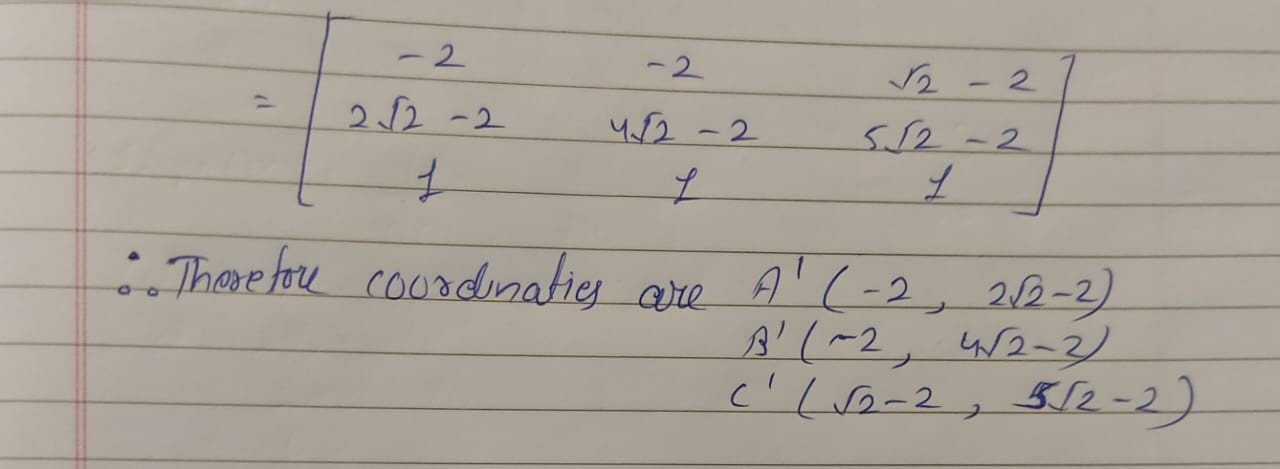 -2 -2 √2 - 2
= 2√2 - 2 4√2 - 2 5√2 - 2
1 1 1
∴ Therefore coordinaties are A' (-2, 2√2-2)
B' (-2, 4√2-2)
C' (√2-2, 5√2-2)